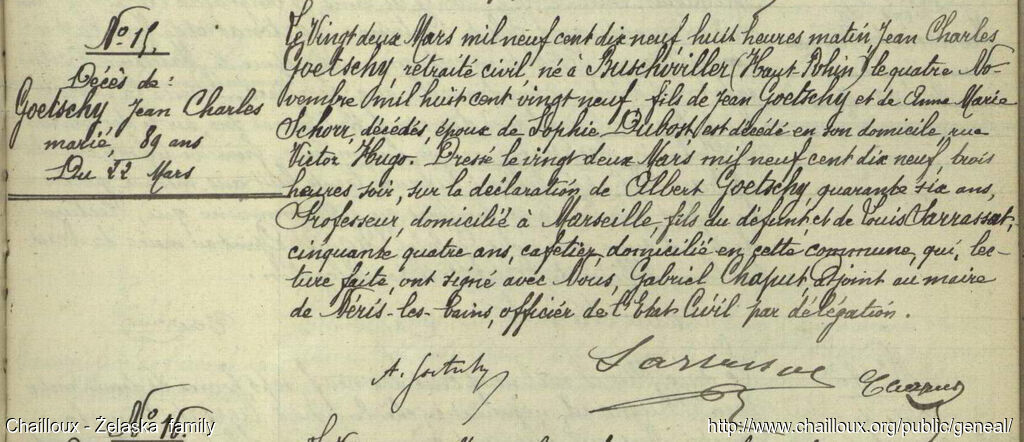 N° 15.
Décès de:
Goetschy Jean Charles
marié, 89 ans
Du 22 Mars
Le Vingt deux Mars mil neuf cent dix neuf, huit heures matin, Jean Charles
Goetschy, retraité civil, né à Buschwiller (Haut-Rhin) le quatre No-
vembre mil huit cent vingt neuf, fils de Jean Goetschy et de Anne Marie
Schorr, décédés, époux de Sophie Dubost, est décédé en son domicile, rue
Victor Hugo. Dressé le vingt deux Mars mil neuf cent dix neuf, trois
heures soir, sur la déclaration de Albert Goetschy, quarante six ans,
Professeur, domicilié à Marseille, fils du défunt, et de Louis Sarrassat,
cinquante quatre ans, cafetier, domicilié en cette commune, qui, lec-
ture faite, ont signé avec Nous, Gabriel Chaput, adjoint au maire
de Néris-les-bains, officier de l'Etat Civil par délégation.
A. Goetschy Sarrassat Chaput
N° 16.
Chailloux - Żelaska family
http://www.chailloux.org/public/geneal/